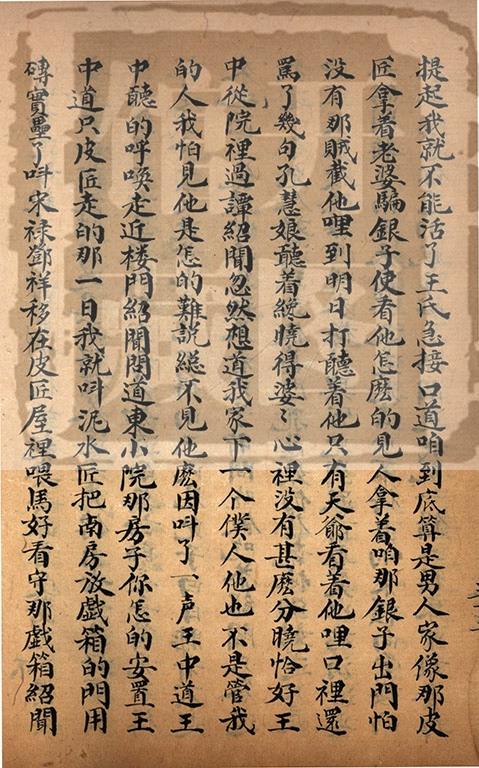 提起我就不能活了王氏急接口道咱到底算是男人家像那皮
匠拿着老婆騙銀子使看他怎麽的見人拿着咱那銀子出門怕
没有那賊截他哩到明日打聽着他只有天爺看着他哩口裡還
罵了幾句孔慧娘聽着纔曉得婆〻心裡没有甚麽分曉恰好王
中從院裡過譚紹聞忽然想道我家下一个僕人他也不是管我
的人我怕見他是怎的難說総不見他麽因呌了一声王中道王
中聽的呼唤走近楼門紹聞問道東小院那房子你怎的安置王
中道只皮匠走的那一日我就呌泥水匠把南房放戯箱的門用
磚實壘了呌宋禄鄧祥移在皮匠屋裡喂馬好看守那戯箱紹聞